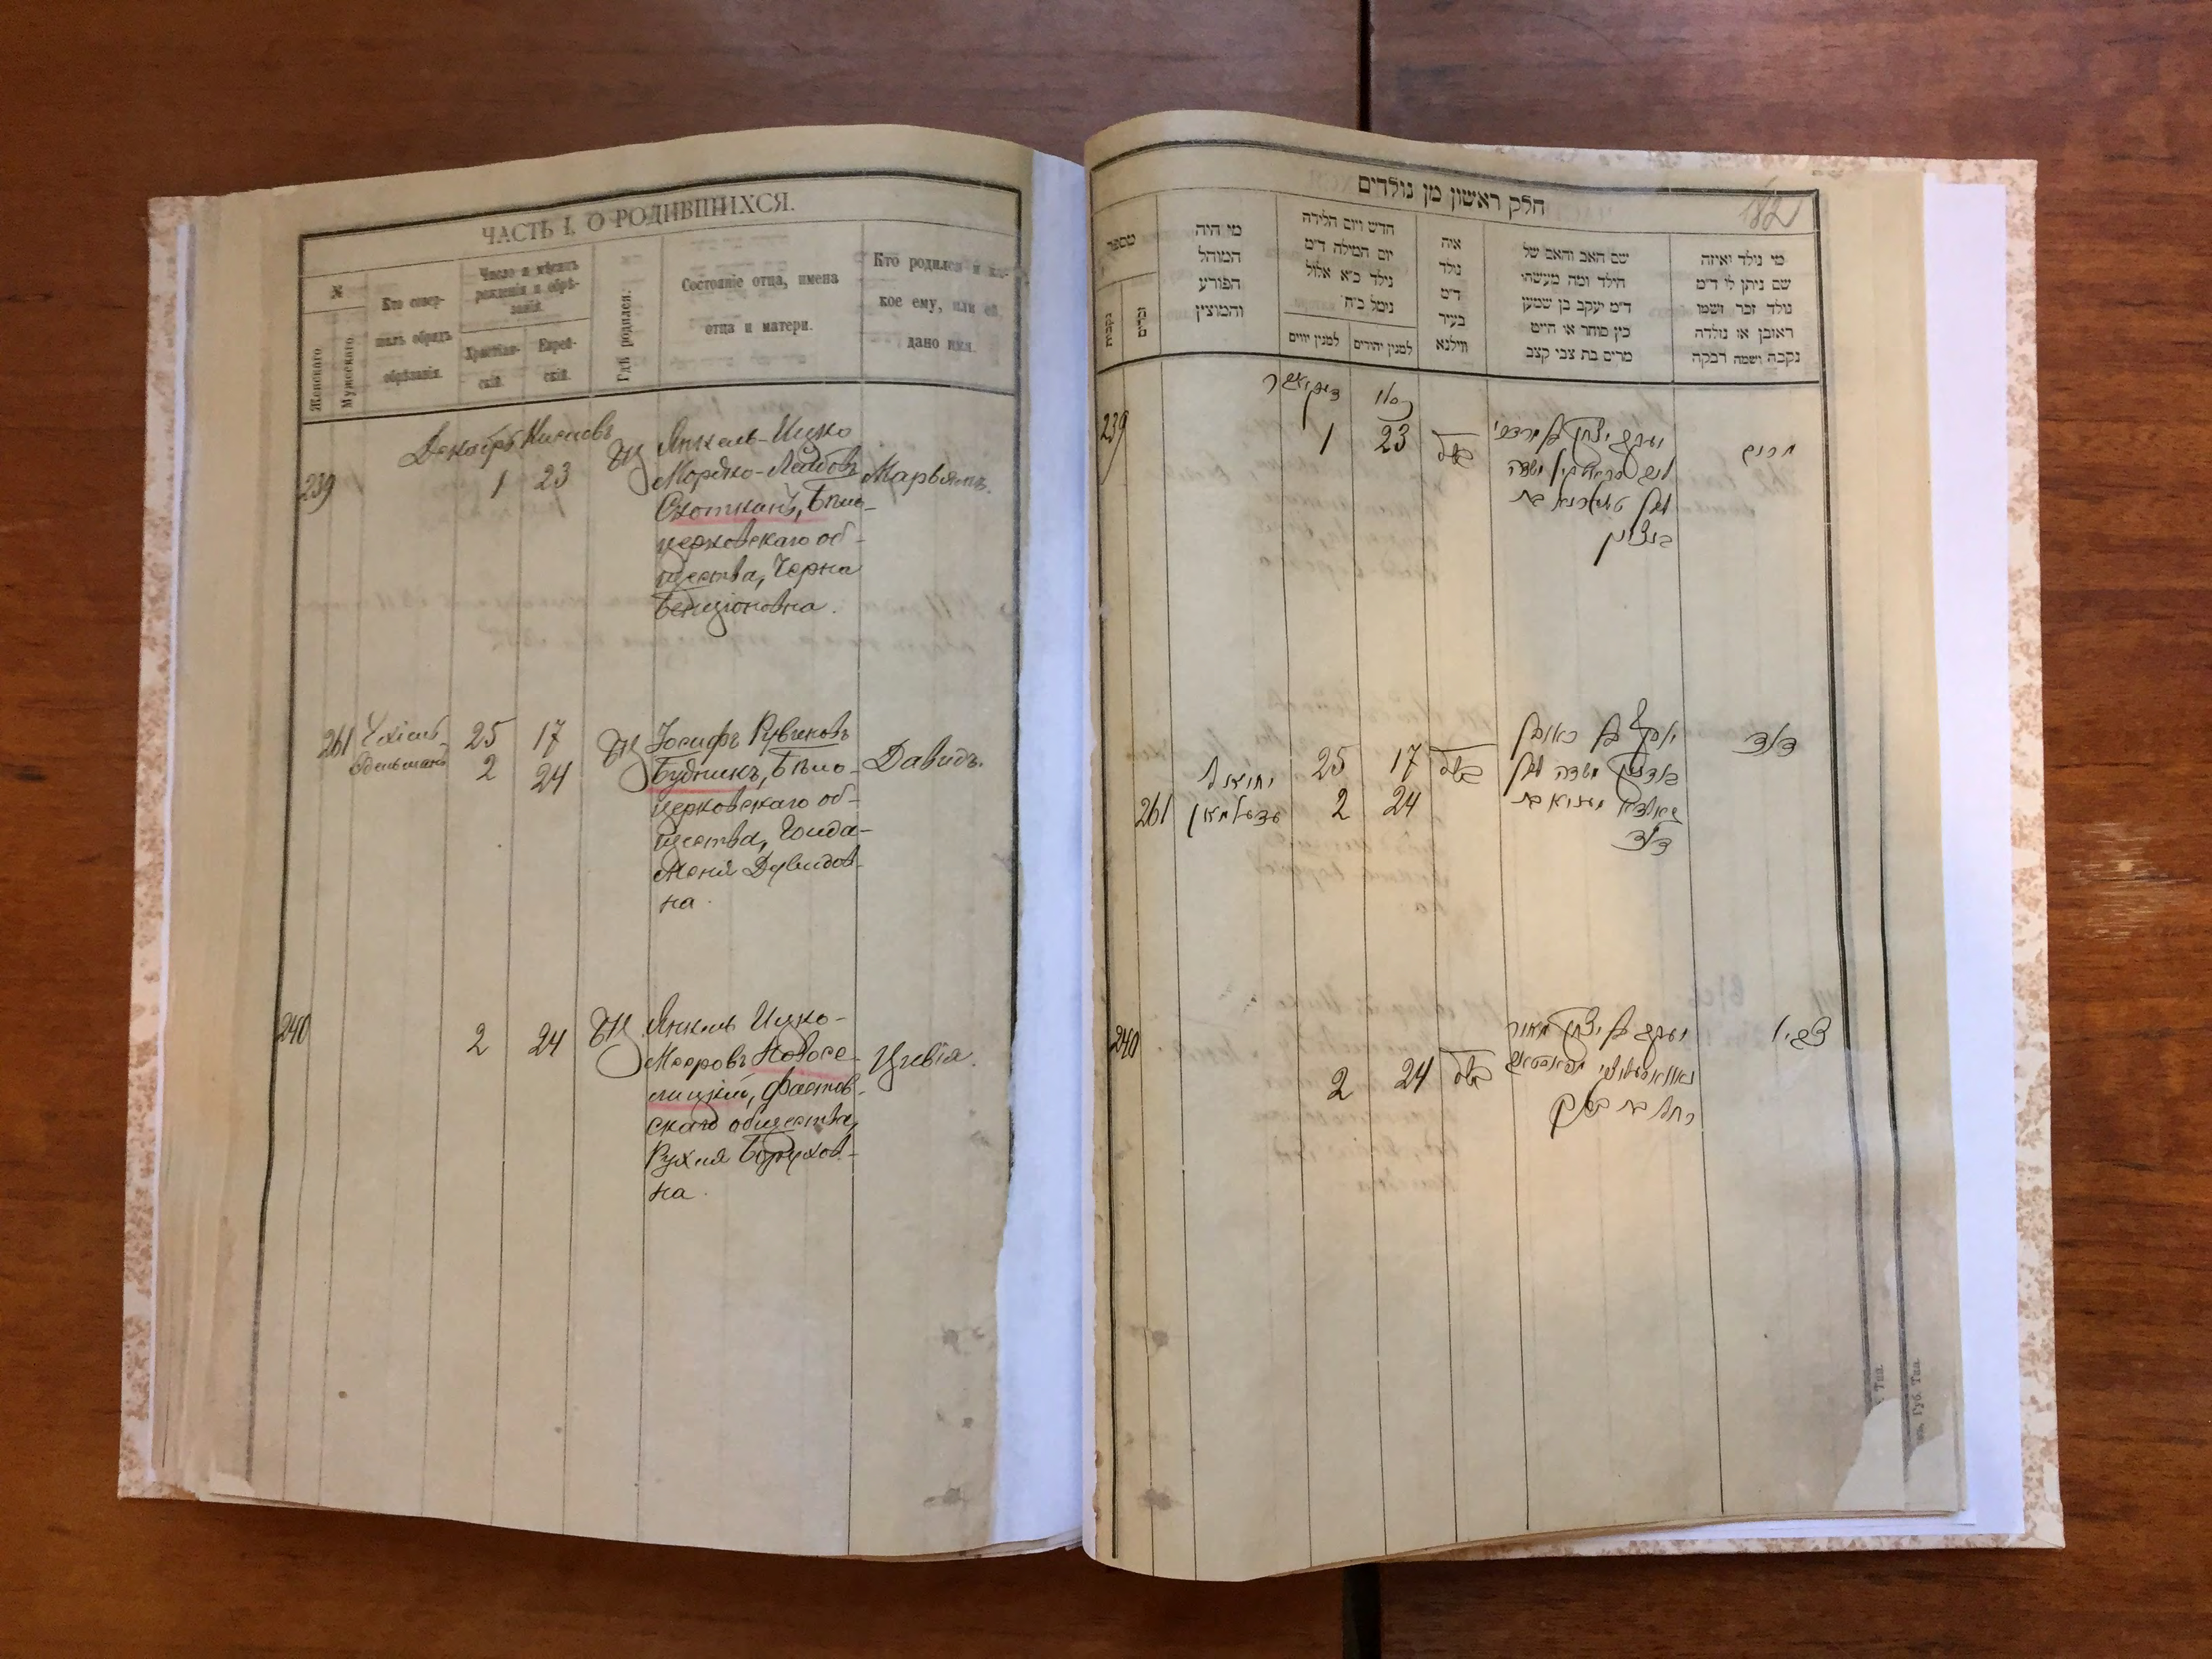 ЧАСТЬ I. О РОДИВШИХСЯ.
№
Женскаго.
Мужескаго.
Кто совер-
шалъ обрядъ
обрѣзанія.
Число и мѣсяцъ
рожденія и обрѣ-
занія.
Христіан-
скій.
Еврей-
скій.
Гдѣ родился.
Состояніе отца, имена
отца и матери.
Кто родился и ка-
кое ему, или ей
дано имя.
Декабрь Кислевъ
239
1
23
БЦ
Янкель-Ицко
Мордко-Лейбовъ
Охотникъ, Бѣло-
церковскаго об-
щества, Черна
Бенціоновна.
Марьямъ.
261
Ехіель
Эдельманъ
25
2
17
24
БЦ
Іосифъ Рувиновъ
Будникъ, Бѣло-
церковскаго об-
щества, Голда-
Меня Давидов-
на.
Давидъ.
240
2
24
БЦ
Янкель Ицко-
Мееровъ Новосе-
лицкій, Фастов-
скаго общества,
Рухля Борухов-
на.
Цивія.
182
חלק ראשון מן נולדים
מספר
נקבות
זכרים
מי היה
המוהל
הפורע
והמוצץ
חדש ויום הלידה
יום המילה ד״מ
נילד כ״א אלול
נימל כ״ח
למנין יווים
למנין יהודים
איה
נולד
ד״מ
בעיר
ווילנא
שם האב והאם של
הילד ומה מעשהי
ד״מ יעקב בן שמען
כץ סוחר או חייט
מרים בת צבי קצב
מי נילד יאיזה
שם ניתן לי ד״מ
נולד זכר ושמו
ראובן או נולדה
נקבה ושמה רבקה
כסלו
239
1
23
יעקב יצחק בן מרדכי
בנציון
מרים
261
יחיאל
עדעלמאן
25
2
17
24
יוסף בן ראובן
דוד
דוד
240
2
24
יעקב בן יצחק מאיר
רחל בת ברוך
צביו